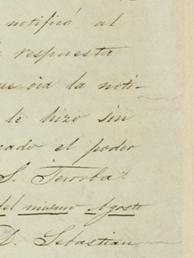 notificó al
respuesta
que oid la noti-
le hizo sin
cado el poder
S. Terroba
del mismo Agosto
D. Sebastian